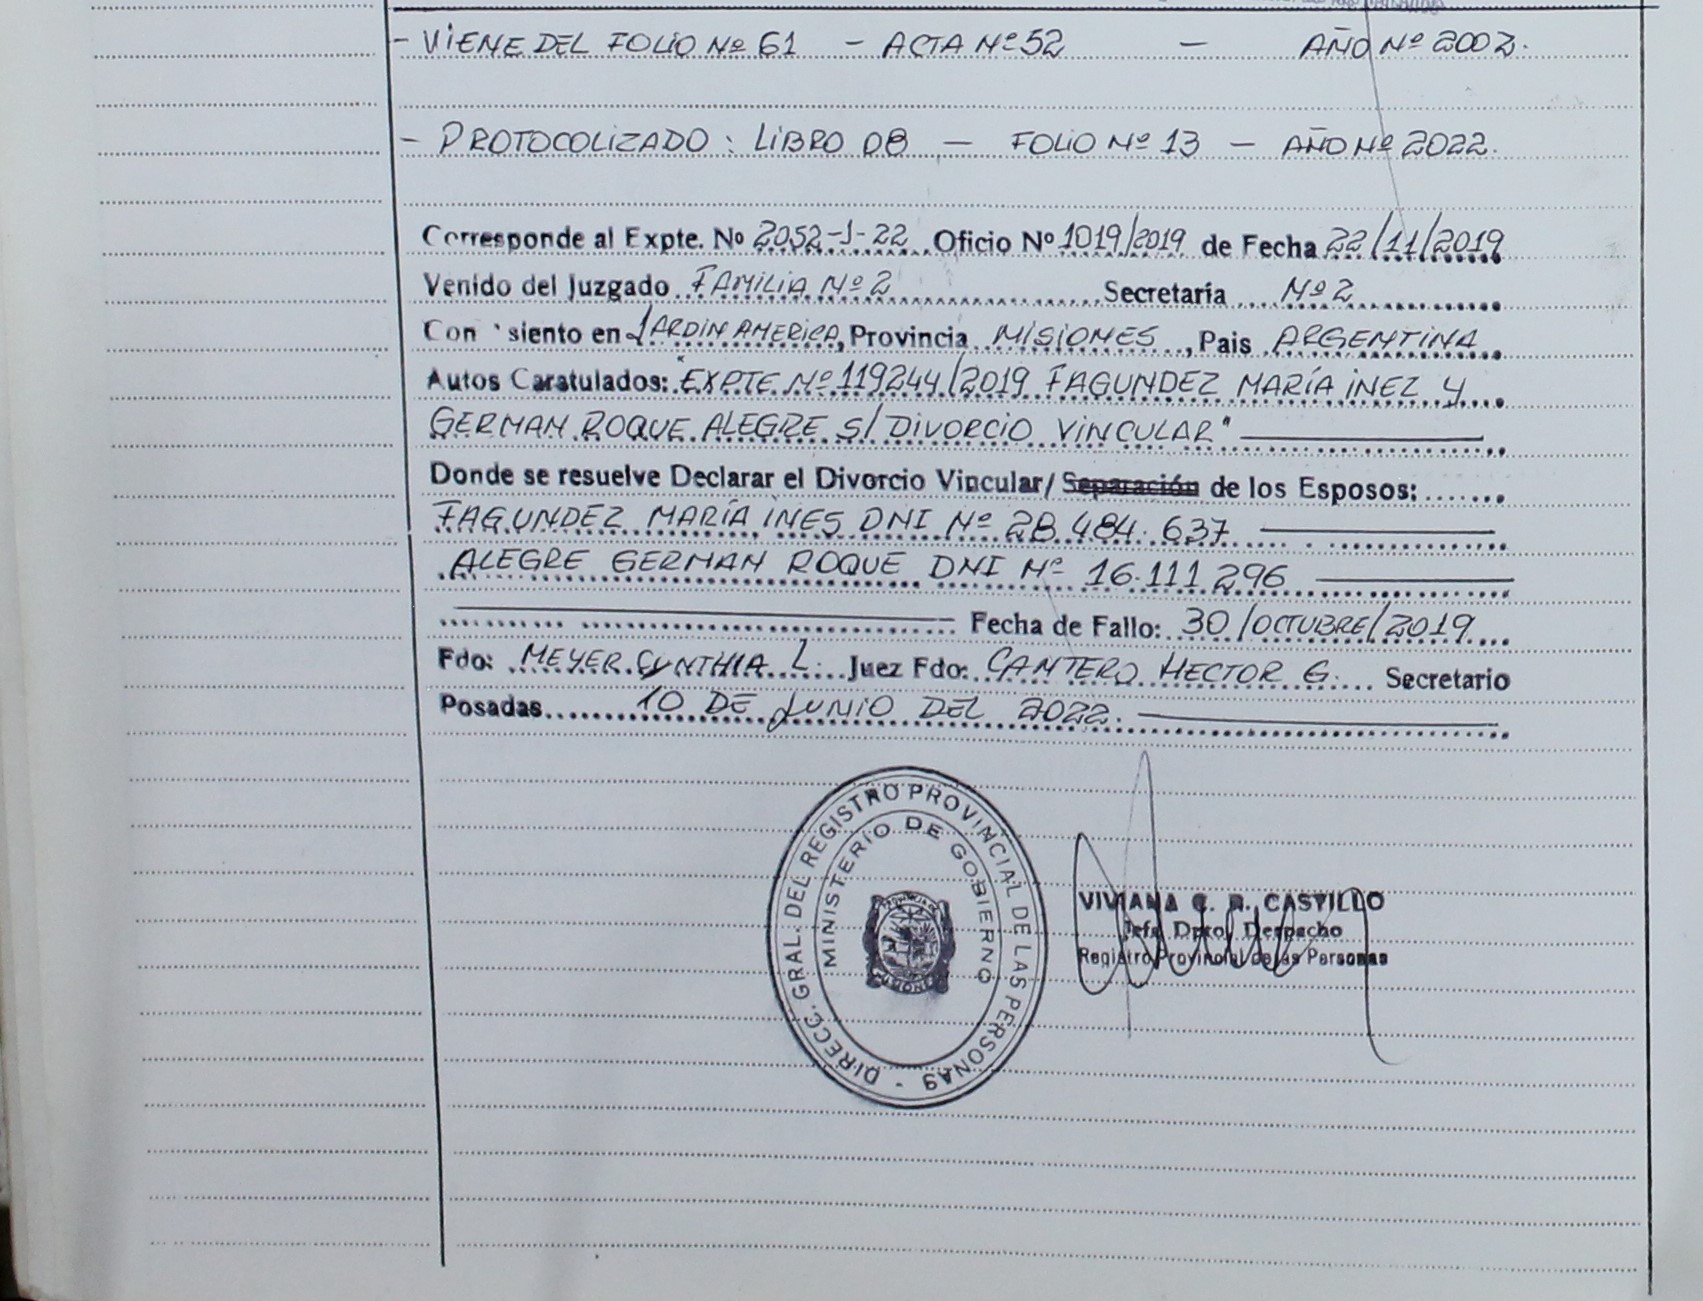 - VIENE DEL FOLIO Nº 61 - ACTA Nº 52 - AÑO Nº 2002.
- PROTOCOLIZADO: LIBRO 08 - FOLIO Nº 13 - AÑO Nº 2022.
Corresponde al Expte. Nº 2052-J-22 Oficio Nº 1019/2019 de Fecha 22/11/2019
Venido del Juzgado FAMILIA Nº 2 Secretaría Nº 2
Con siento en JARDIN AMERICA, Provincia MISIONES, Pais ARGENTINA
Autos Caratulados: "EXPTE Nº 119244/2019 FAGUNDEZ MARÍA INEZ Y
GERMAN ROQUE ALEGRE S/ DIVORCIO VINCULAR"
Donde se resuelve Declarar el Divorcio Vincular/ Separación de los Esposos:
FAGUNDEZ MARÍA INES DNI Nº 28.484.637
ALEGRE GERMAN ROQUE DNI Nº 16.111.296
Fecha de Fallo: 30/OCTUBRE/2019
Fdo: MEYER CYNTHIA L. Juez Fdo: CANTERO HECTOR G. Secretario
Posadas 10 DE JUNIO DEL 2022.
DIRECC. GRAL. DEL REGISTRO PROVINCIAL DE LAS PERSONAS -
MINISTERIO DE GOBIERNO
VIVIANA C. R. CASTILLO
Jefa Dpto. Despacho
Registro Provincial de las Personas